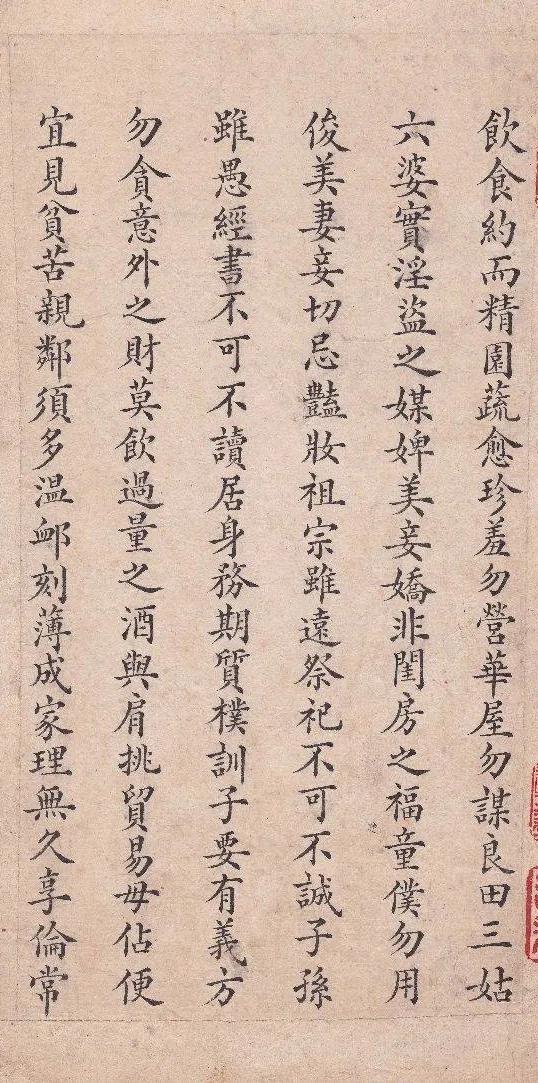 飲食約而精園蔬愈珍羞勿營華屋勿謀良田三姑
六婆實淫盜之媒婢美妾嬌非閨房之福童僕勿用
俊美妻妾切忌豔妝祖宗雖遠祭祀不可不誠子孫
雖愚經書不可不讀居身務期質樸訓子要有義方
勿貪意外之財莫飲過量之酒與肩挑貿易毋佔便
宜見貧苦親鄰須多溫卹刻薄成家理無久享倫常